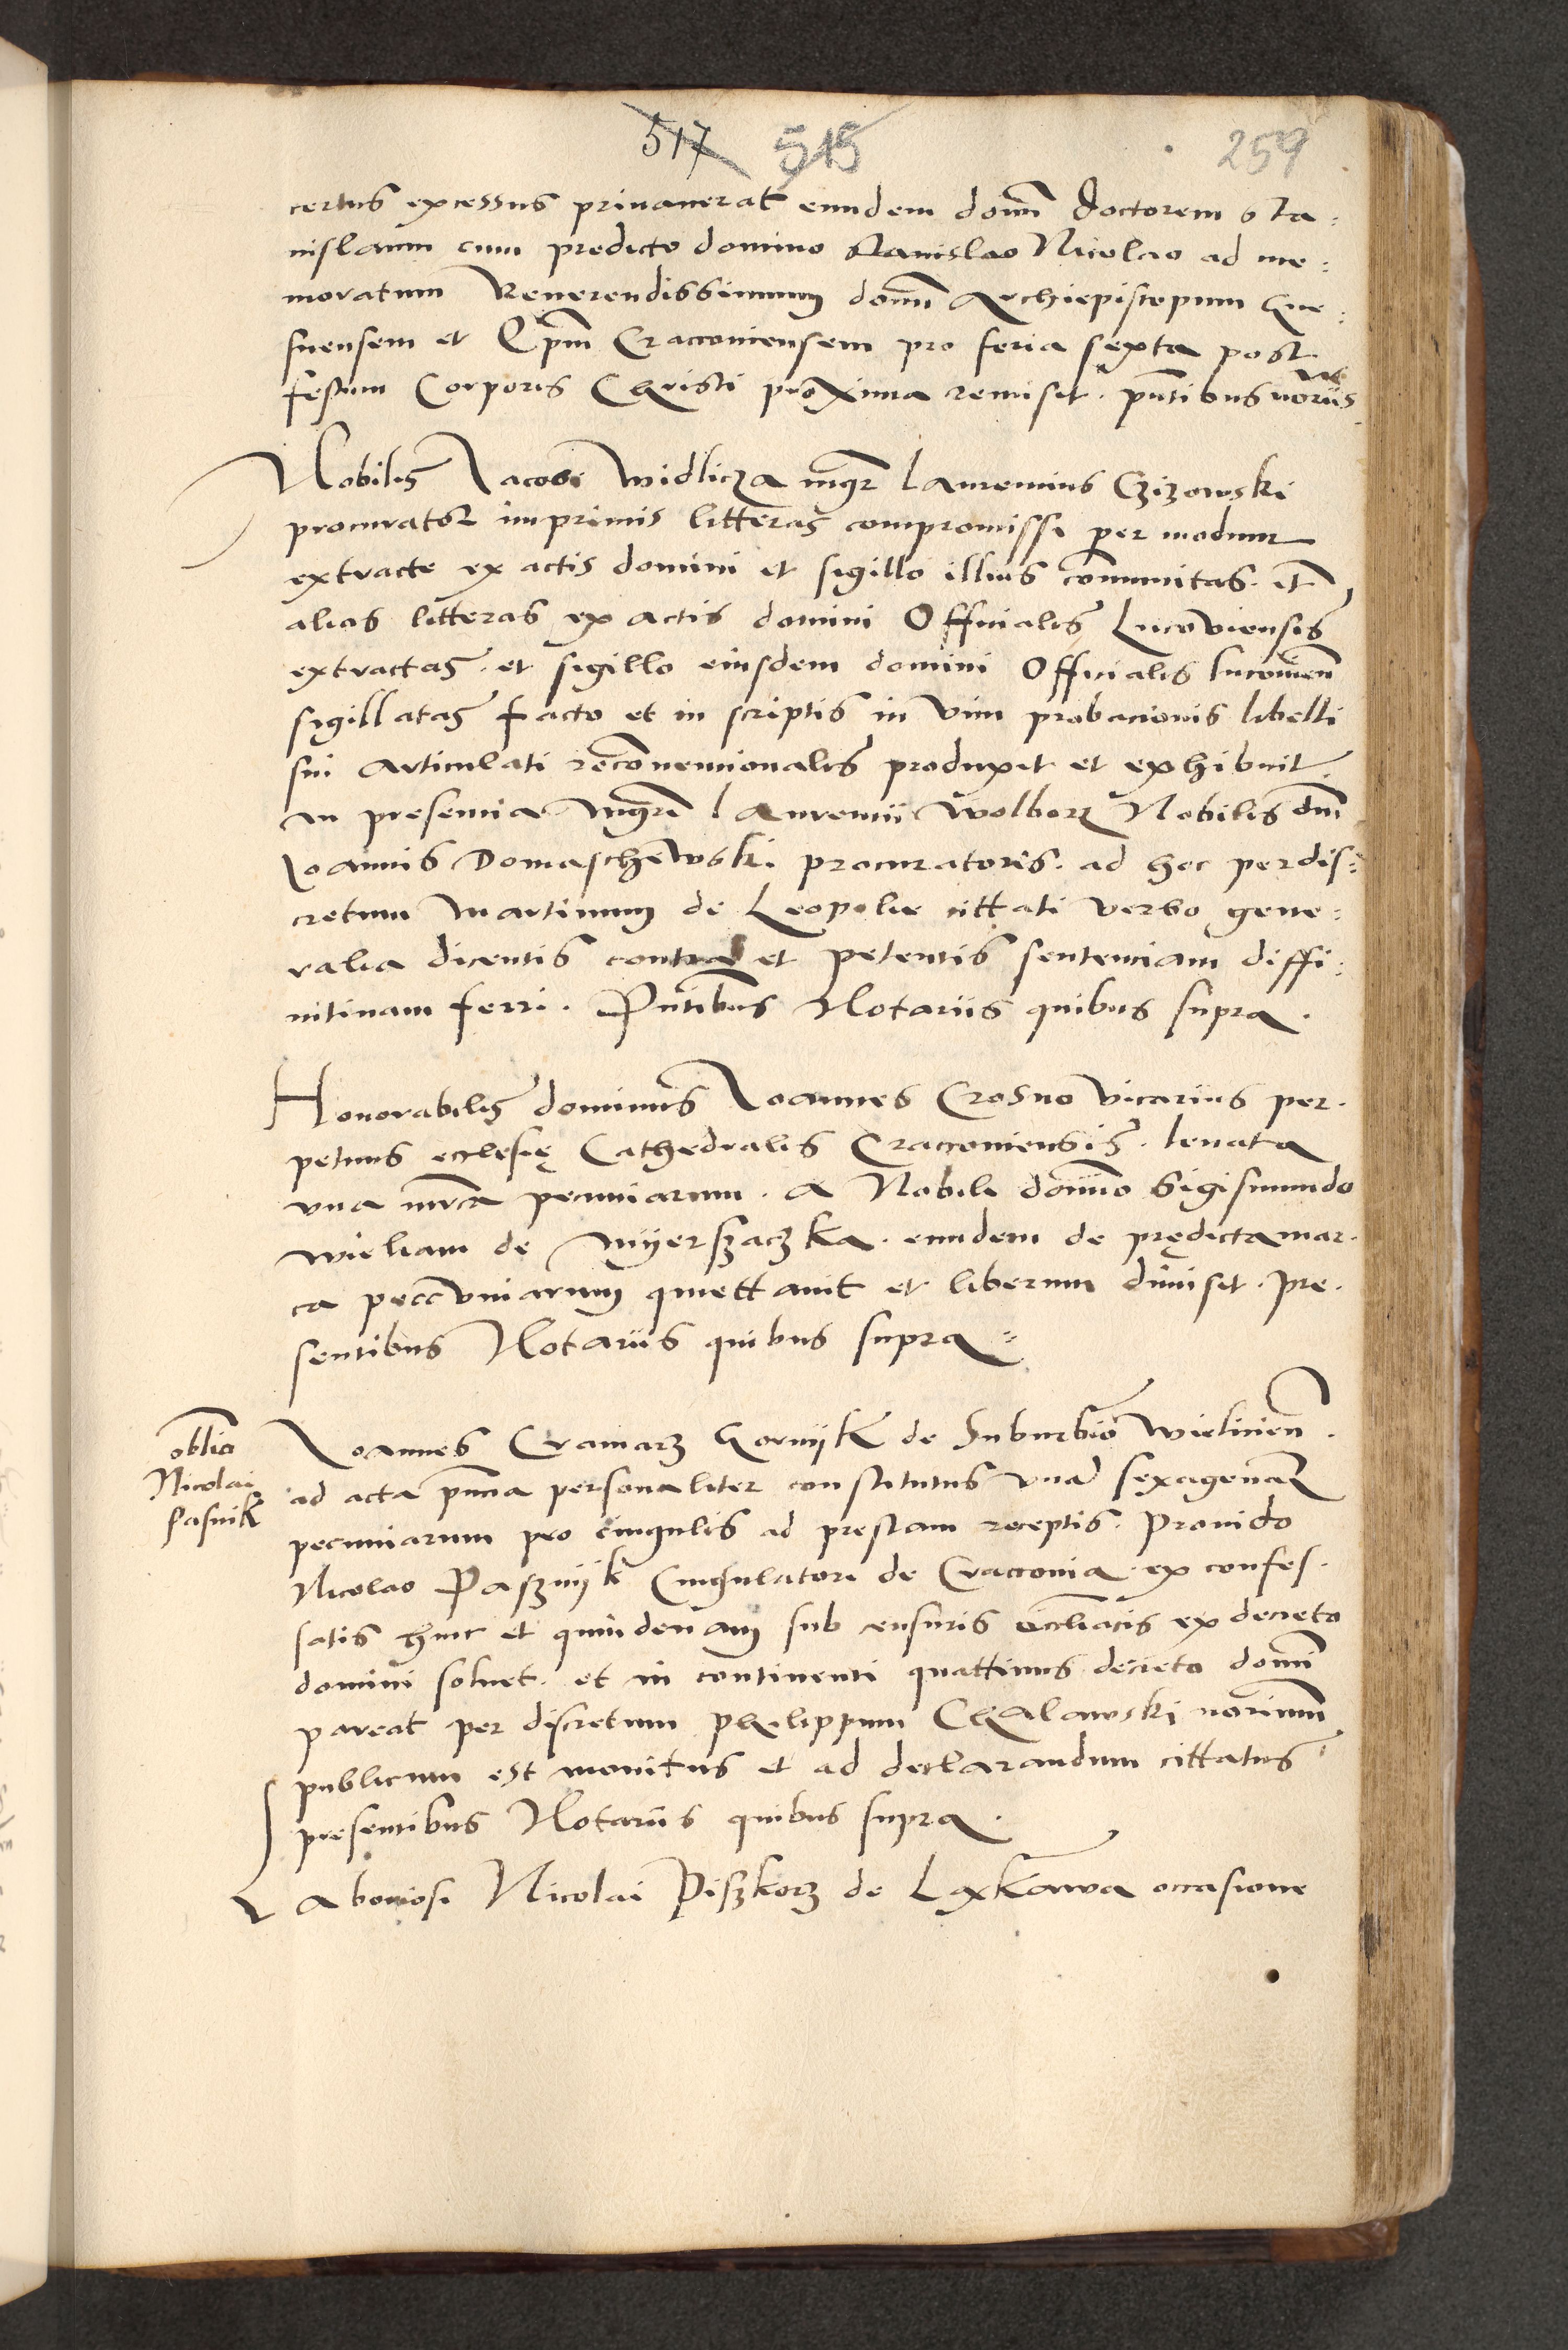 517 515 259
certus excessus priuauerat eundem domn̄ doctorem Sta-
nislaum cum predicto domino Stanislao Nicolao ad me-
moratum Reuerendissimum domn̄ Archiepiscopum Gne-
snensem et Ep̄m Cracouiensem pro feria sexta post
festum Corporis Christi proxima remisit. pn̄tibus
Nobilis Jacobi Widlicza mgr̄ Laurentius Czizowski
procurator imprimis litteras compromissi per modum
extracte ex actis domini et sigillo illius com̄unitas. et
alias litteras ex actis domini Officialis Lucoviensis
extractas. et sigillo eiusdem domini Officialis Lucouien̄
sigillatas facto et in scriptis in vim probacionis libelli
sui articulati recōuencionalis produxit et exhibuit
in presentia mgr̄i Laurentii Wolborz Nobilis dn̄i
Joannis Domaschewski procuratoris. ad hoc per dis-
cretum Martinum de Leopolie cittati verbo gene-
ralia dicentis contra et petentis sentenciam diffi-
nitiuam ferri. Pn̄tibus Notariis quibus supra.
Honorabilis dominus Joannes Crosno vicarius per-
petuus ecclesię Cathedralis Cracouiensis. leuata
vna mr̄ca pecuniarum. a Nobili domino Sigismundo
Wieliam de Myerszaczka. eundem de prędicta mar-
ca peccuniarum quettauit et liberum dimisit. pre-
sentibus Notariis quibus supra
obl̄io
Nicolai
Pasnik
Joannes Cramarz Gornyk de Suburbio Wielicien̄.
ad acta pn̄cia personaliter constitutus vna sexagena
pecuniarum pro cingulis ad prestam receptis. Prouido
Nicolao Pasznyk Cingulatori de Cracouia. ex confes-
satis hinc et quindenam sub censuris eccl̄iacis ex decreto
domini soluet. et in continenti quattinus decreto domi
pareat per discretum Philippum Chalawski nōrium
publicum est monitus et ad declarandum cittatus
presentibus Notariis quibus supra.
Laboriosi Nicolai Piszkorz de Laxkawa occasione